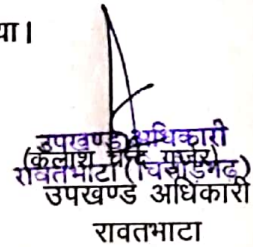 या।
उपखण्ड अधिकारी
(कैलाश चन्द गुर्जर)
रावतभाटा (चित्तौड़गढ़)
उपखण्ड अधिकारी
रावतभाटा